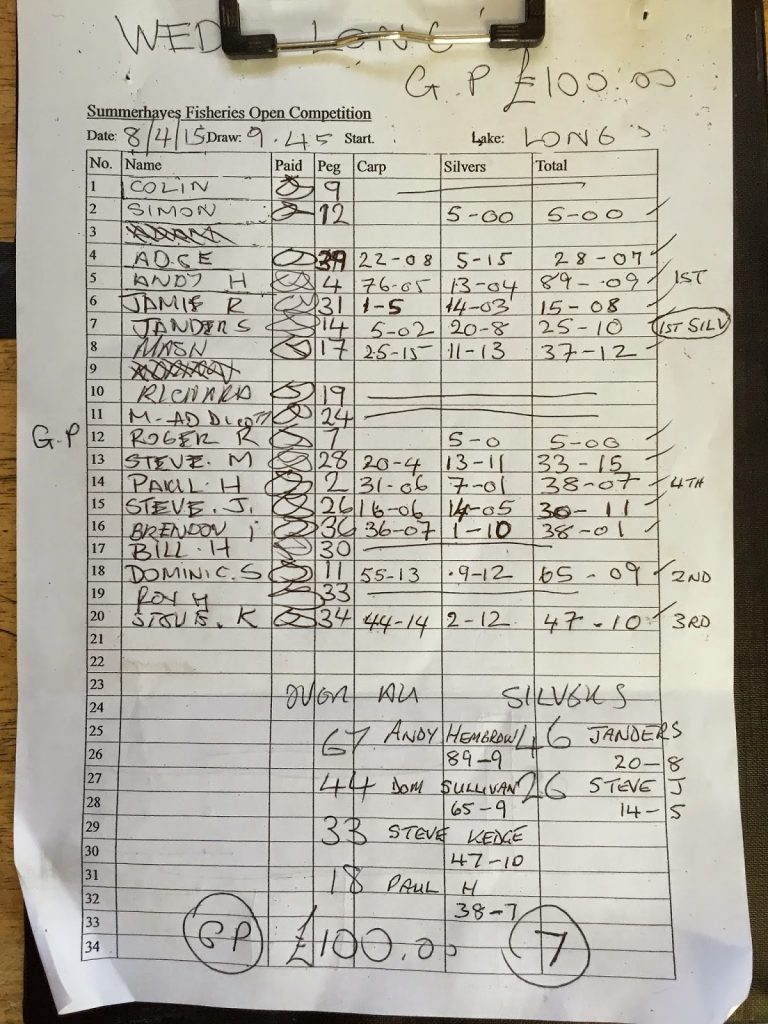 WED LONG'S
G.P £100.00
Summerhayes Fisheries Open Competition
Date: 8/4/15 Draw: 9.45 Start. Lake: LONG'S
No. Name Paid Peg Carp Silvers Total
1 COLIN 9
2 SIMON 12 5-00 5-00
3
4 ADGE 39 22-08 5-15 28-07
5 ANDY H 4 76-05 13-04 89-09 1ST
6 JAMIE R 31 1-5 14-03 15-08
7 JANDERS 14 5-02 20-8 25-10 1ST SILV
8 17 25-15 11-13 37-12
9
10 RICHARD 19
11 M-ADDICOTT 24
G.P 12 ROGER R 7 5-0 5-00
13 STEVE. M 28 20-4 13-11 33-15
14 PAUL. H 2 31-06 7-01 38-07 4TH
15 STEVE. J. 26 16-06 14-05 30-11
16 BRENDON 36 36-07 1-10 38-01
17 BILL. H 30
18 DOMINIC. S 11 55-13 9-12 65-09 2ND
19 ROY H 33
20 STEVE. K 34 44-14 2-12 47-10 3RD
21
22
23 OVER ALL SILVERS
24
25 67 ANDY HEMBROW 46 JANDERS
26 89-9 20-8
27 44 DOM SULLIVAN 26 STEVE J
28 65-9 14-5
29 33 STEVE KEDGE
30 47-10
31 18 PAUL H
32 38-7
33 GP £100.00 7
34